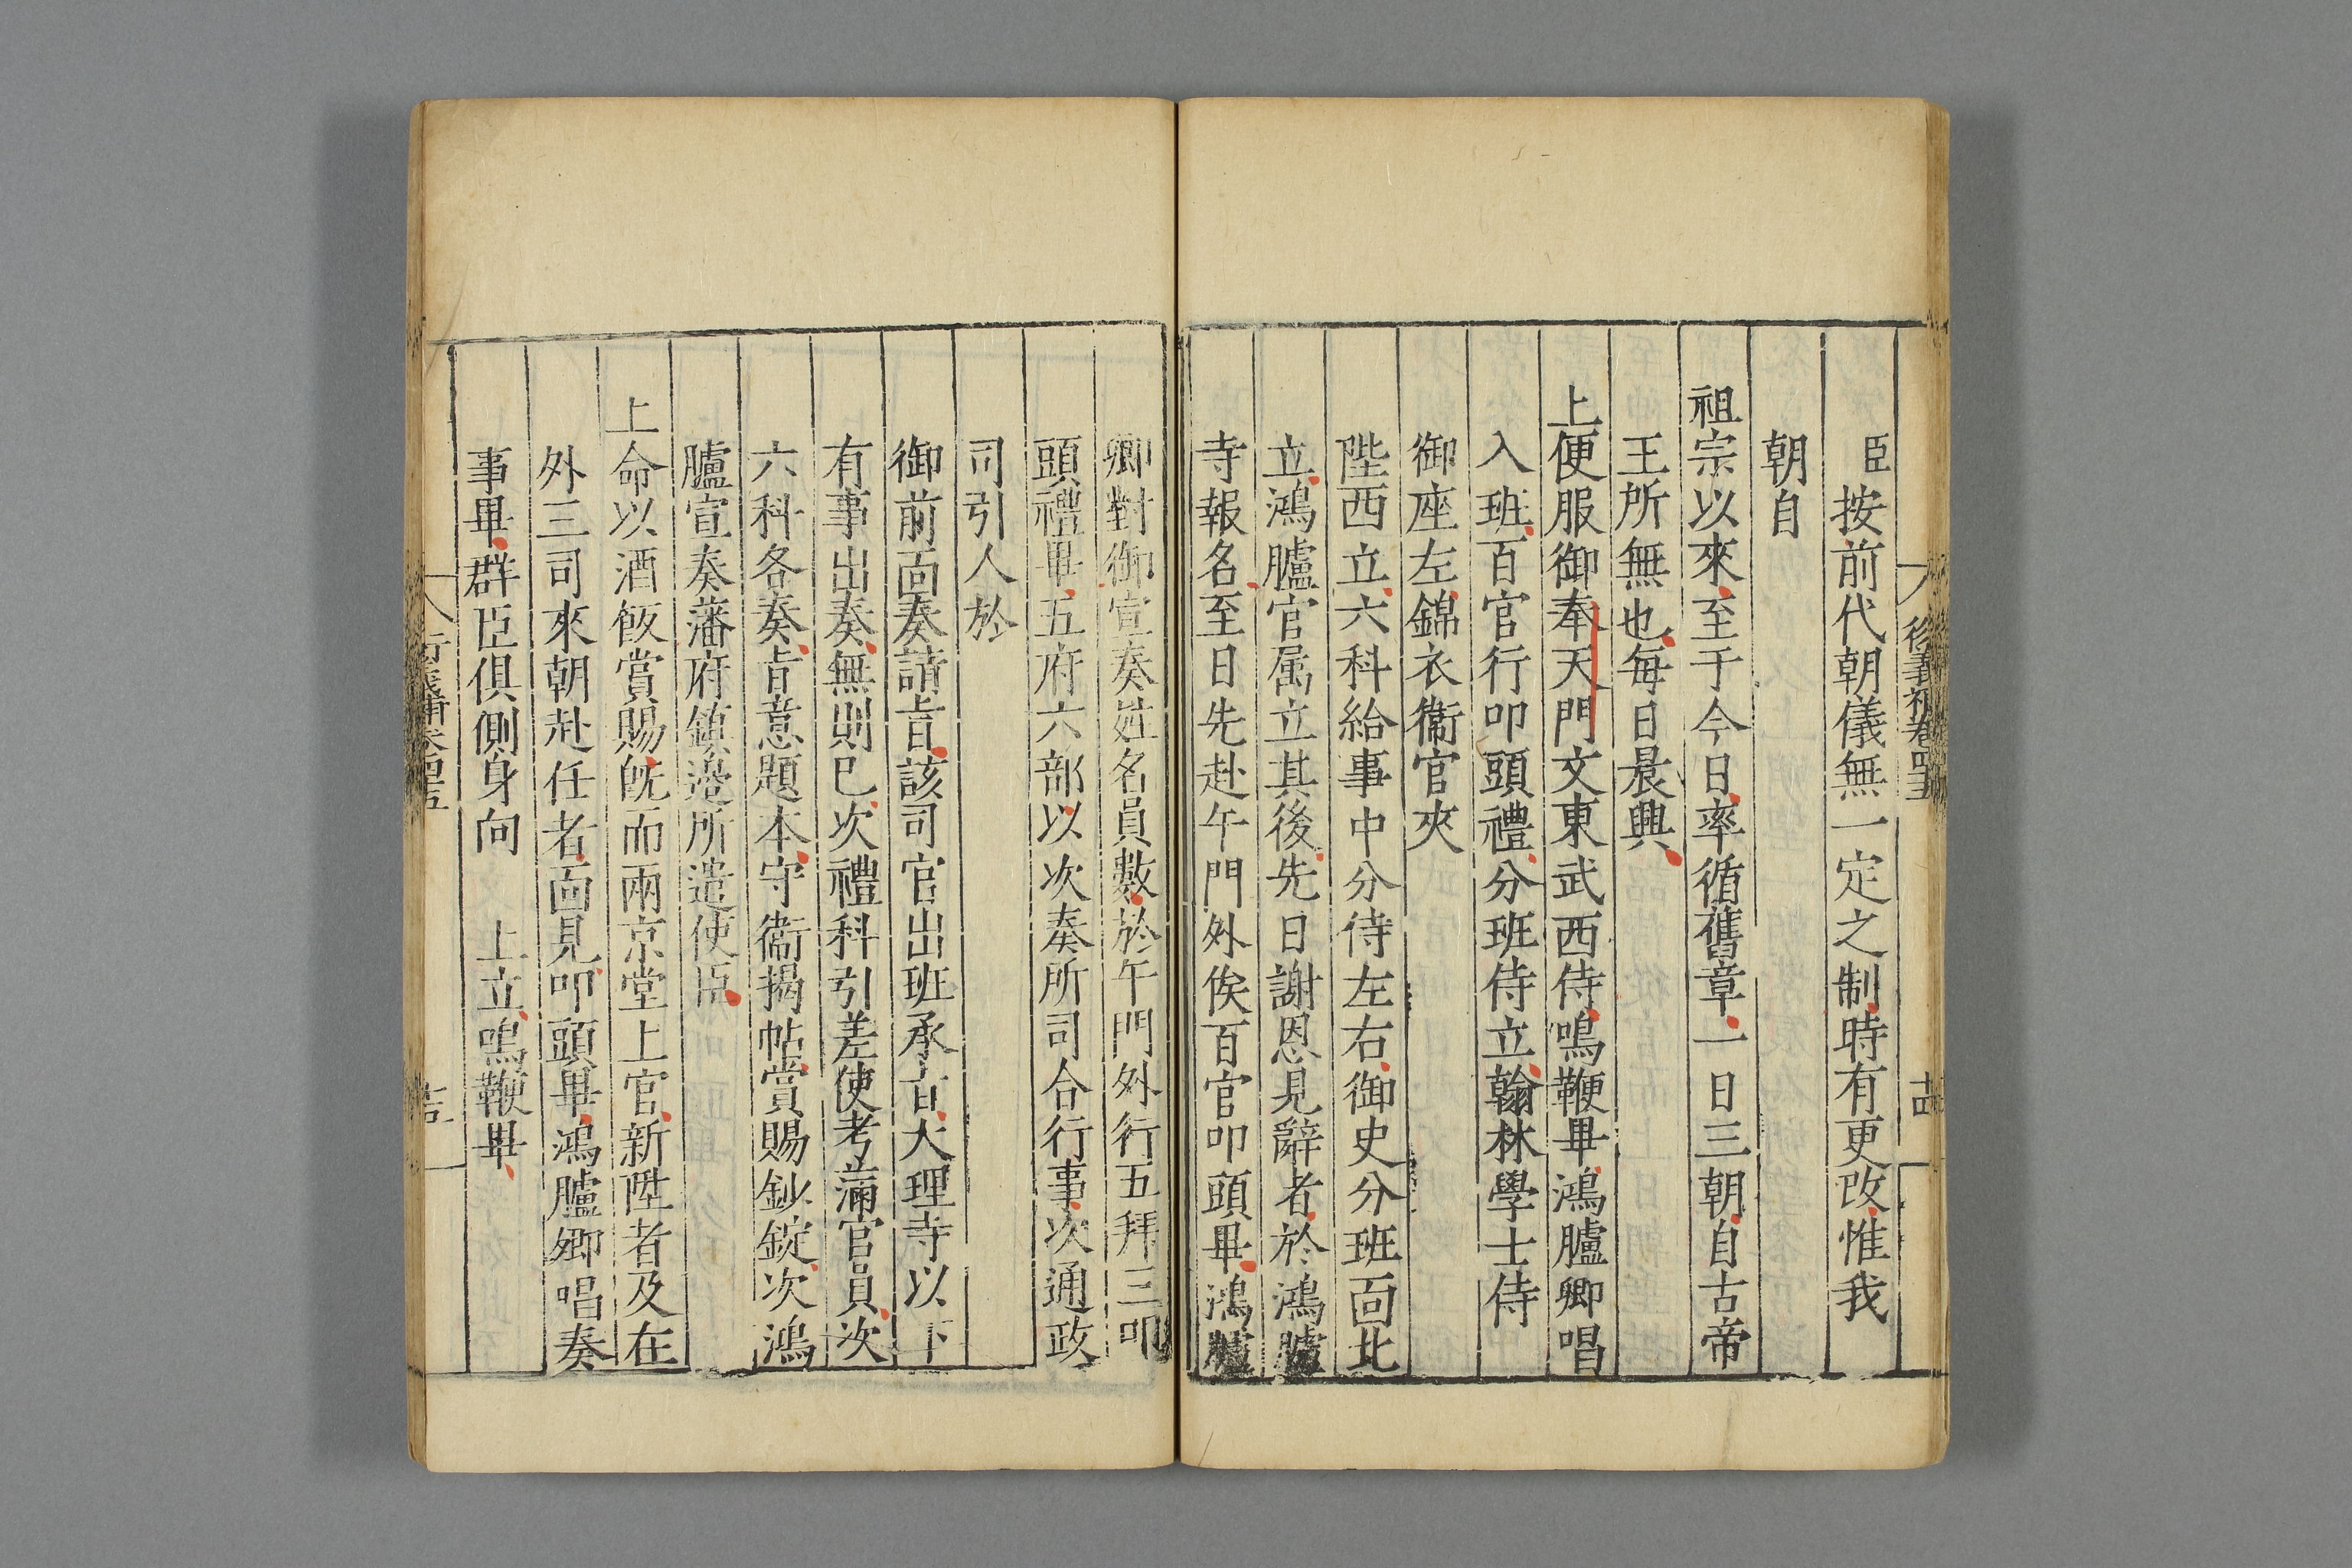 臣按前代朝儀無一定之制時有更改惟我
朝自
祖宗以來至于今日率循舊章一日三朝自古帝
王所無也每日晨興
上便服御奉天門文東武西侍鳴鞭畢鴻臚卿唱
入班百官行叩頭禮分班侍立翰林學士侍
御座左錦衣衞官夾
陛西立六科給事中分侍左右御史分班面北
立鴻臚官属立其後先日謝恩見辭者於鴻臚
寺報名至日先赴午門外俟百官叩頭畢鴻臚
卿對御宣奏姓名員數於午門外行五拜三叩
頭禮畢五府六部以次奏所司合行事次通政
司引人於
御前面奏請旨該司官出班承旨大理寺以下
有事出奏無則已次禮科引差使考滿官員次
六科各奏旨意題本守衞揭帖賞賜鈔錠次鴻
臚宣奏藩府鎮邊所遣使臣
上命以酒飯賞賜旣而兩京堂上官新陞者及在
外三司來朝赴任者面見叩頭畢鴻臚卿唱奏
事畢群臣俱側身向 上立鳴鞭畢